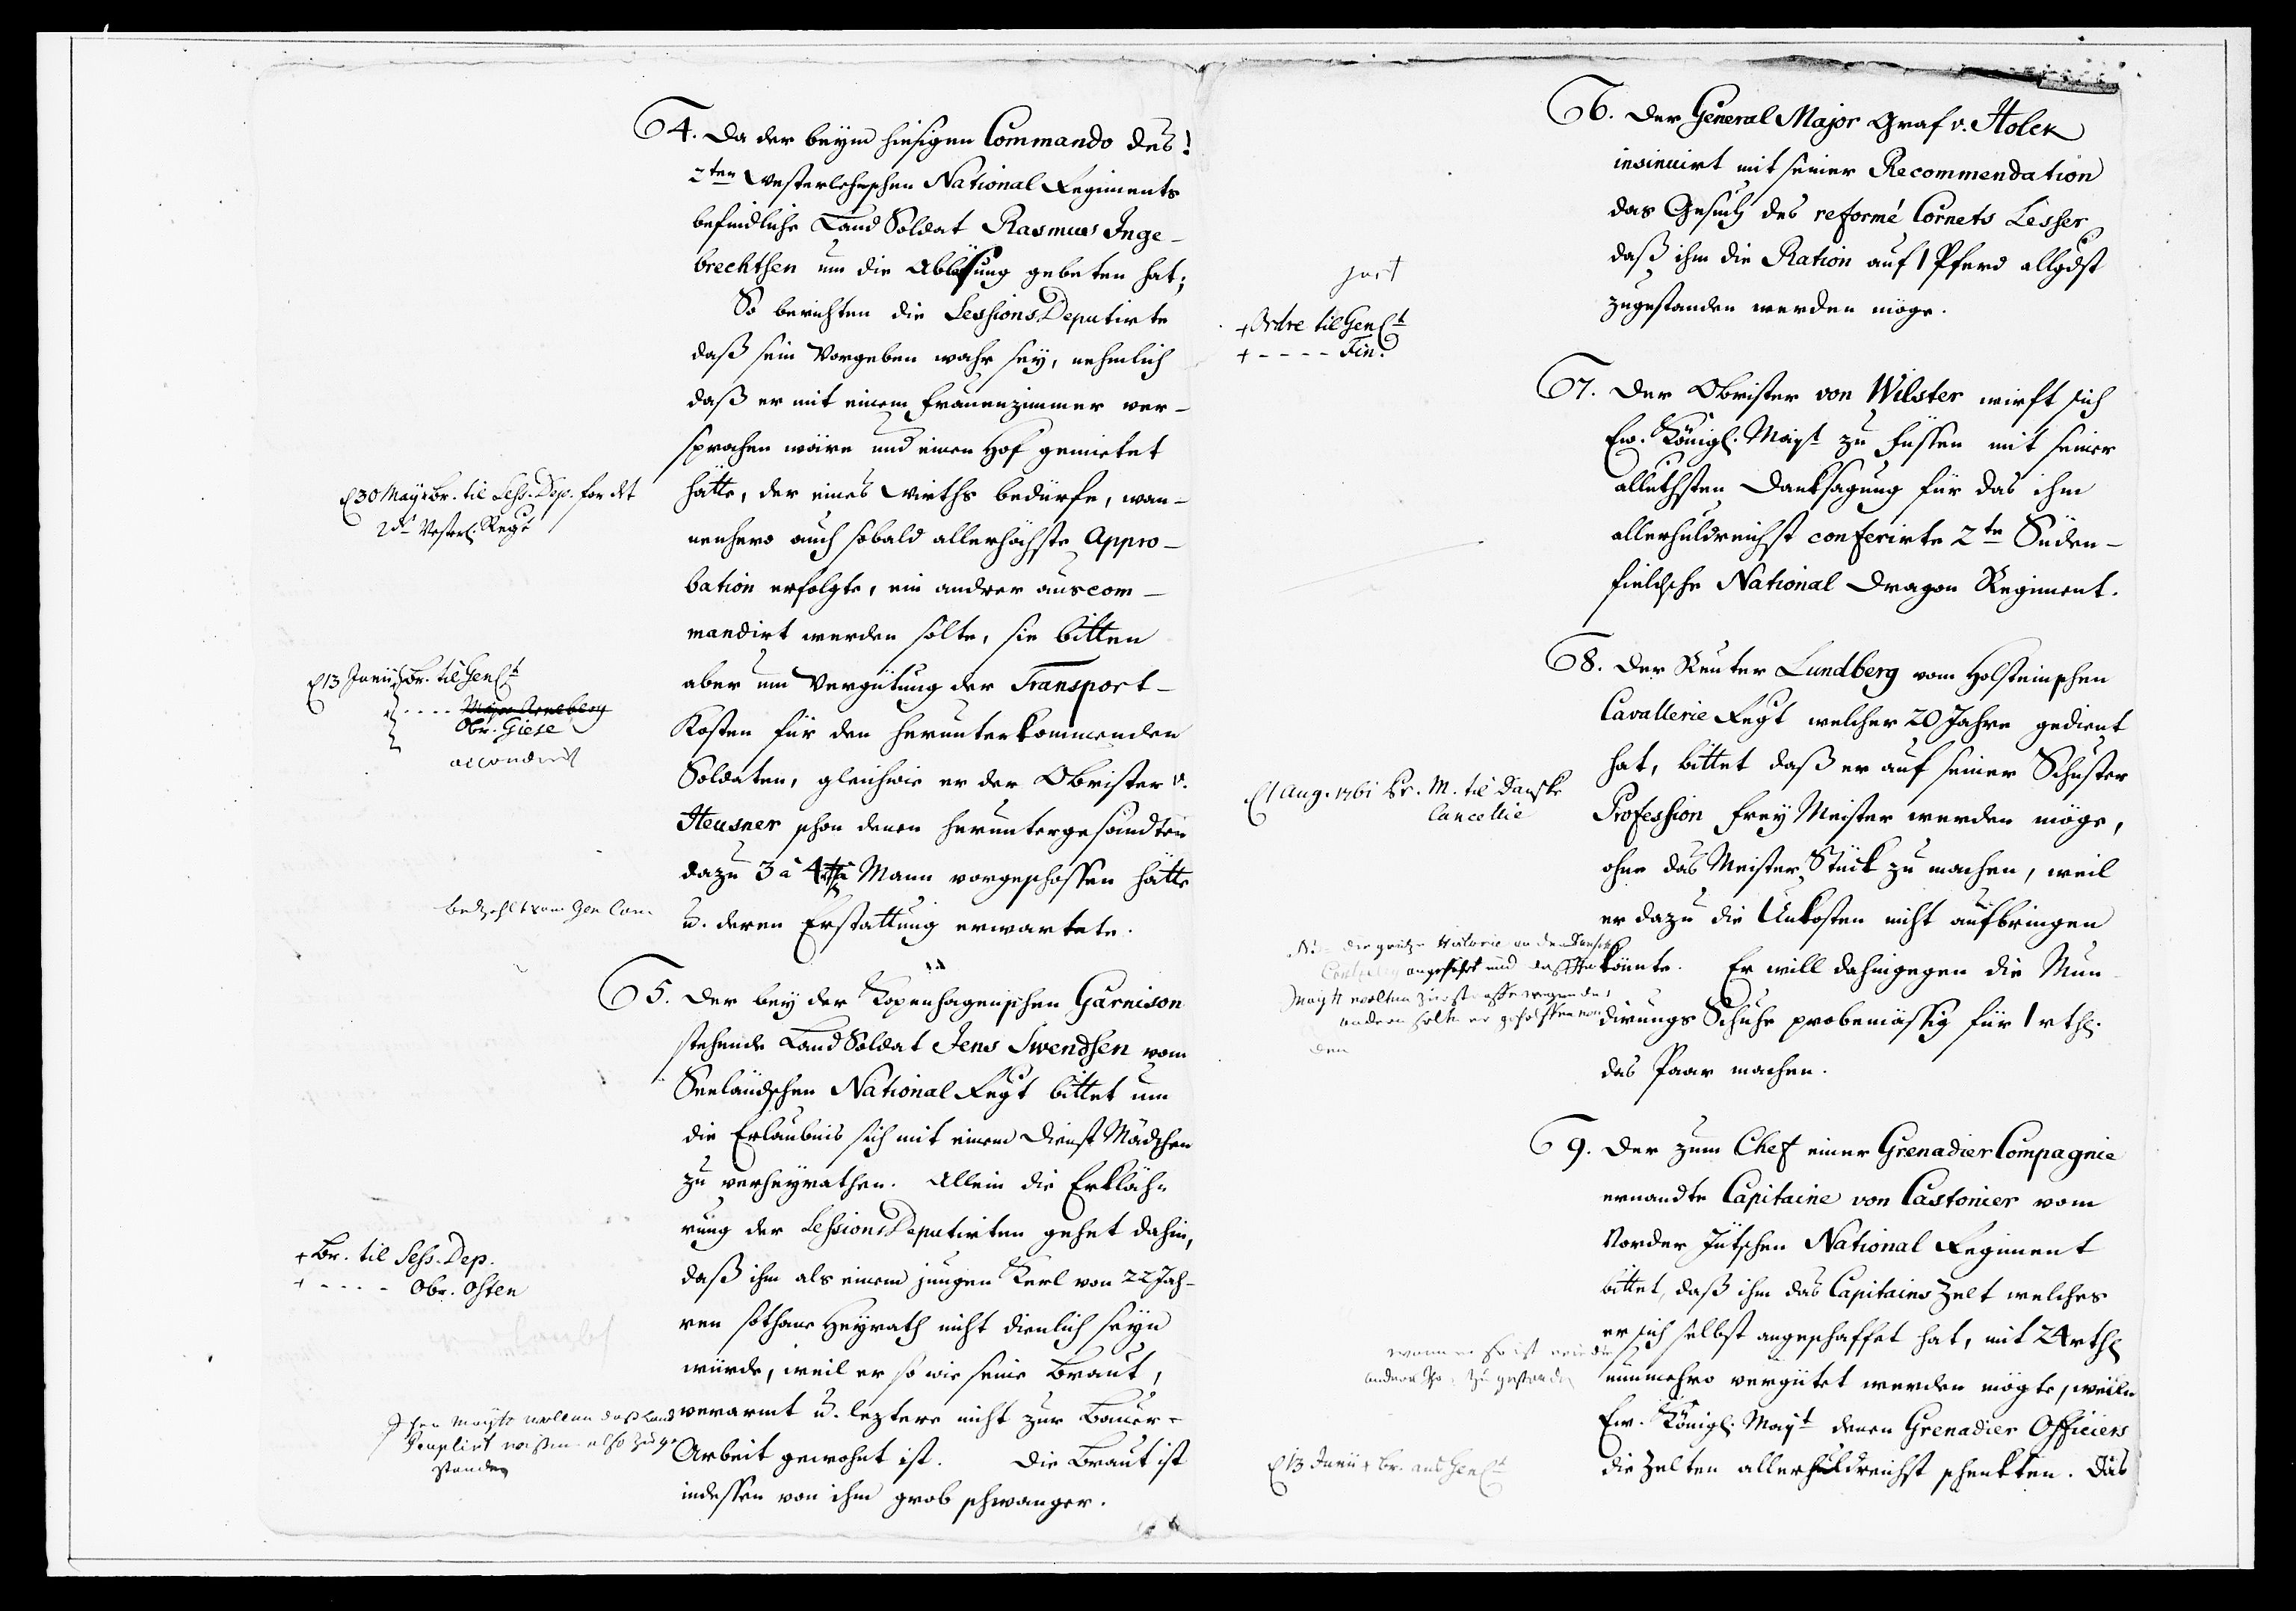 4. Da der beÿm hiesigen Commando des
2ten Westerlehnschen National Regiments
befindliche Land Soldat Rasmus Inge-
brechtsen um die Ablösung gebeten hat;
So berichten die Sessions Deputirte
daß sein Vorgeben wahr seÿ, nehmlich
daß er mit einem Frauenzimmer ver-
sprochen wäre und einen Hof gemietet
hätte, der eines Wirths bedürfe, wan-
nenhero auch sobald allerhöchste Appro-
bation erfolgte, ein andrer auscom-
mandirt werden solte, sie bitten
aber um Vergütung der Transport-
Kosten für den herunterkommenden
Soldaten, gleichwie er der Obrister v.
Heusner schon denen heruntergesandten
dazu 3 à 4 Mann vorgeschossen hätte
u. deren Erstattung erwartete.
30 Maÿ Br. til Sess. Dep. for det
2de Vesterl. Regt
13 Junii Br. til Gen Ct
---- Major Arneberg
Obr. Giese
accordirt
bezahlt vom Gen Com
5. Der beÿ der Kopenhagenschen Garnison
stehende Land Soldat Jens Swendsen vom
Seeländschen National Regt bittet um
die Erlaubnis sich mit einem Dienst Mädchen
zu verheÿrathen. Allein die Erkläh-
rung der Sessions Deputirten gehet dahin,
daß ihm als einem jungen Kerl von 22 Jah-
ren sothane Heÿrath nicht dienlich seÿn
würde, weil er so wie seine Braut,
verarmt u. leztere nicht zur Bauer-
Arbeit gewohnt ist. Die Braut ist
indessen von ihm grob schwanger.
+ Br. til Sess. Dep.
+ ---- Obr. Osten
Ihro Maÿtt wollen daß Land
Peuplirt wissen also zuge
standen
6. Der General Major Graf v. Holck
insinuirt mit seiner Recommendation
das Gesuch des reformé Cornets Lesser
daß ihm die Ration auf 1 Pferd allgdst
zugestanden werden möge.
+ Ordre til Gen Ct
+ ---- Fin.
7. Der Obrister von Wilster wirft sich
Ew. Königl. Maÿt zu Füssen mit seiner
alluthsten Danksagung für das ihm
allerhuldreichst conferirte 2te Süden-
fieldsche National Dragon Regiment.
8. Der Reuter Lundberg vom Holsteinschen
Cavallerie Regt welcher 20 Jahre gedient
hat, bittet daß er auf seiner Schuster
Profession Freÿ Meister werden möge,
ohne das Meister Stück zu machen, weil
er dazu die Unkosten nicht aufbringen
könnte. Er will dahingegen die Mun-
dirungs Schuhe probemässig für 1 rthl.
das Paar machen.
1 Aug. 1761 Br. M. til Danske
Cancellie
angeführt und daß Ihr
Maÿtt wolten
andern solte er geholffen wer
den
9. Der zum Chef einer Grenadier Compagnie
ernandte Capitaine von Castonier vom
Norder Jütschen National Regiment
bittet, daß ihm das Capitains Zelt welches
er sich selbst angeschaffet hat, mit 24 rthl
nunmehro vergütet werden mögte, weiln
Ew. Königl. Maÿt denen Grenadier Officiers
die Zelten allerhuldreichst schenkten. Das
wann er so ist wie die
andern zugestanden
13 Junii Br. and Gen Ct